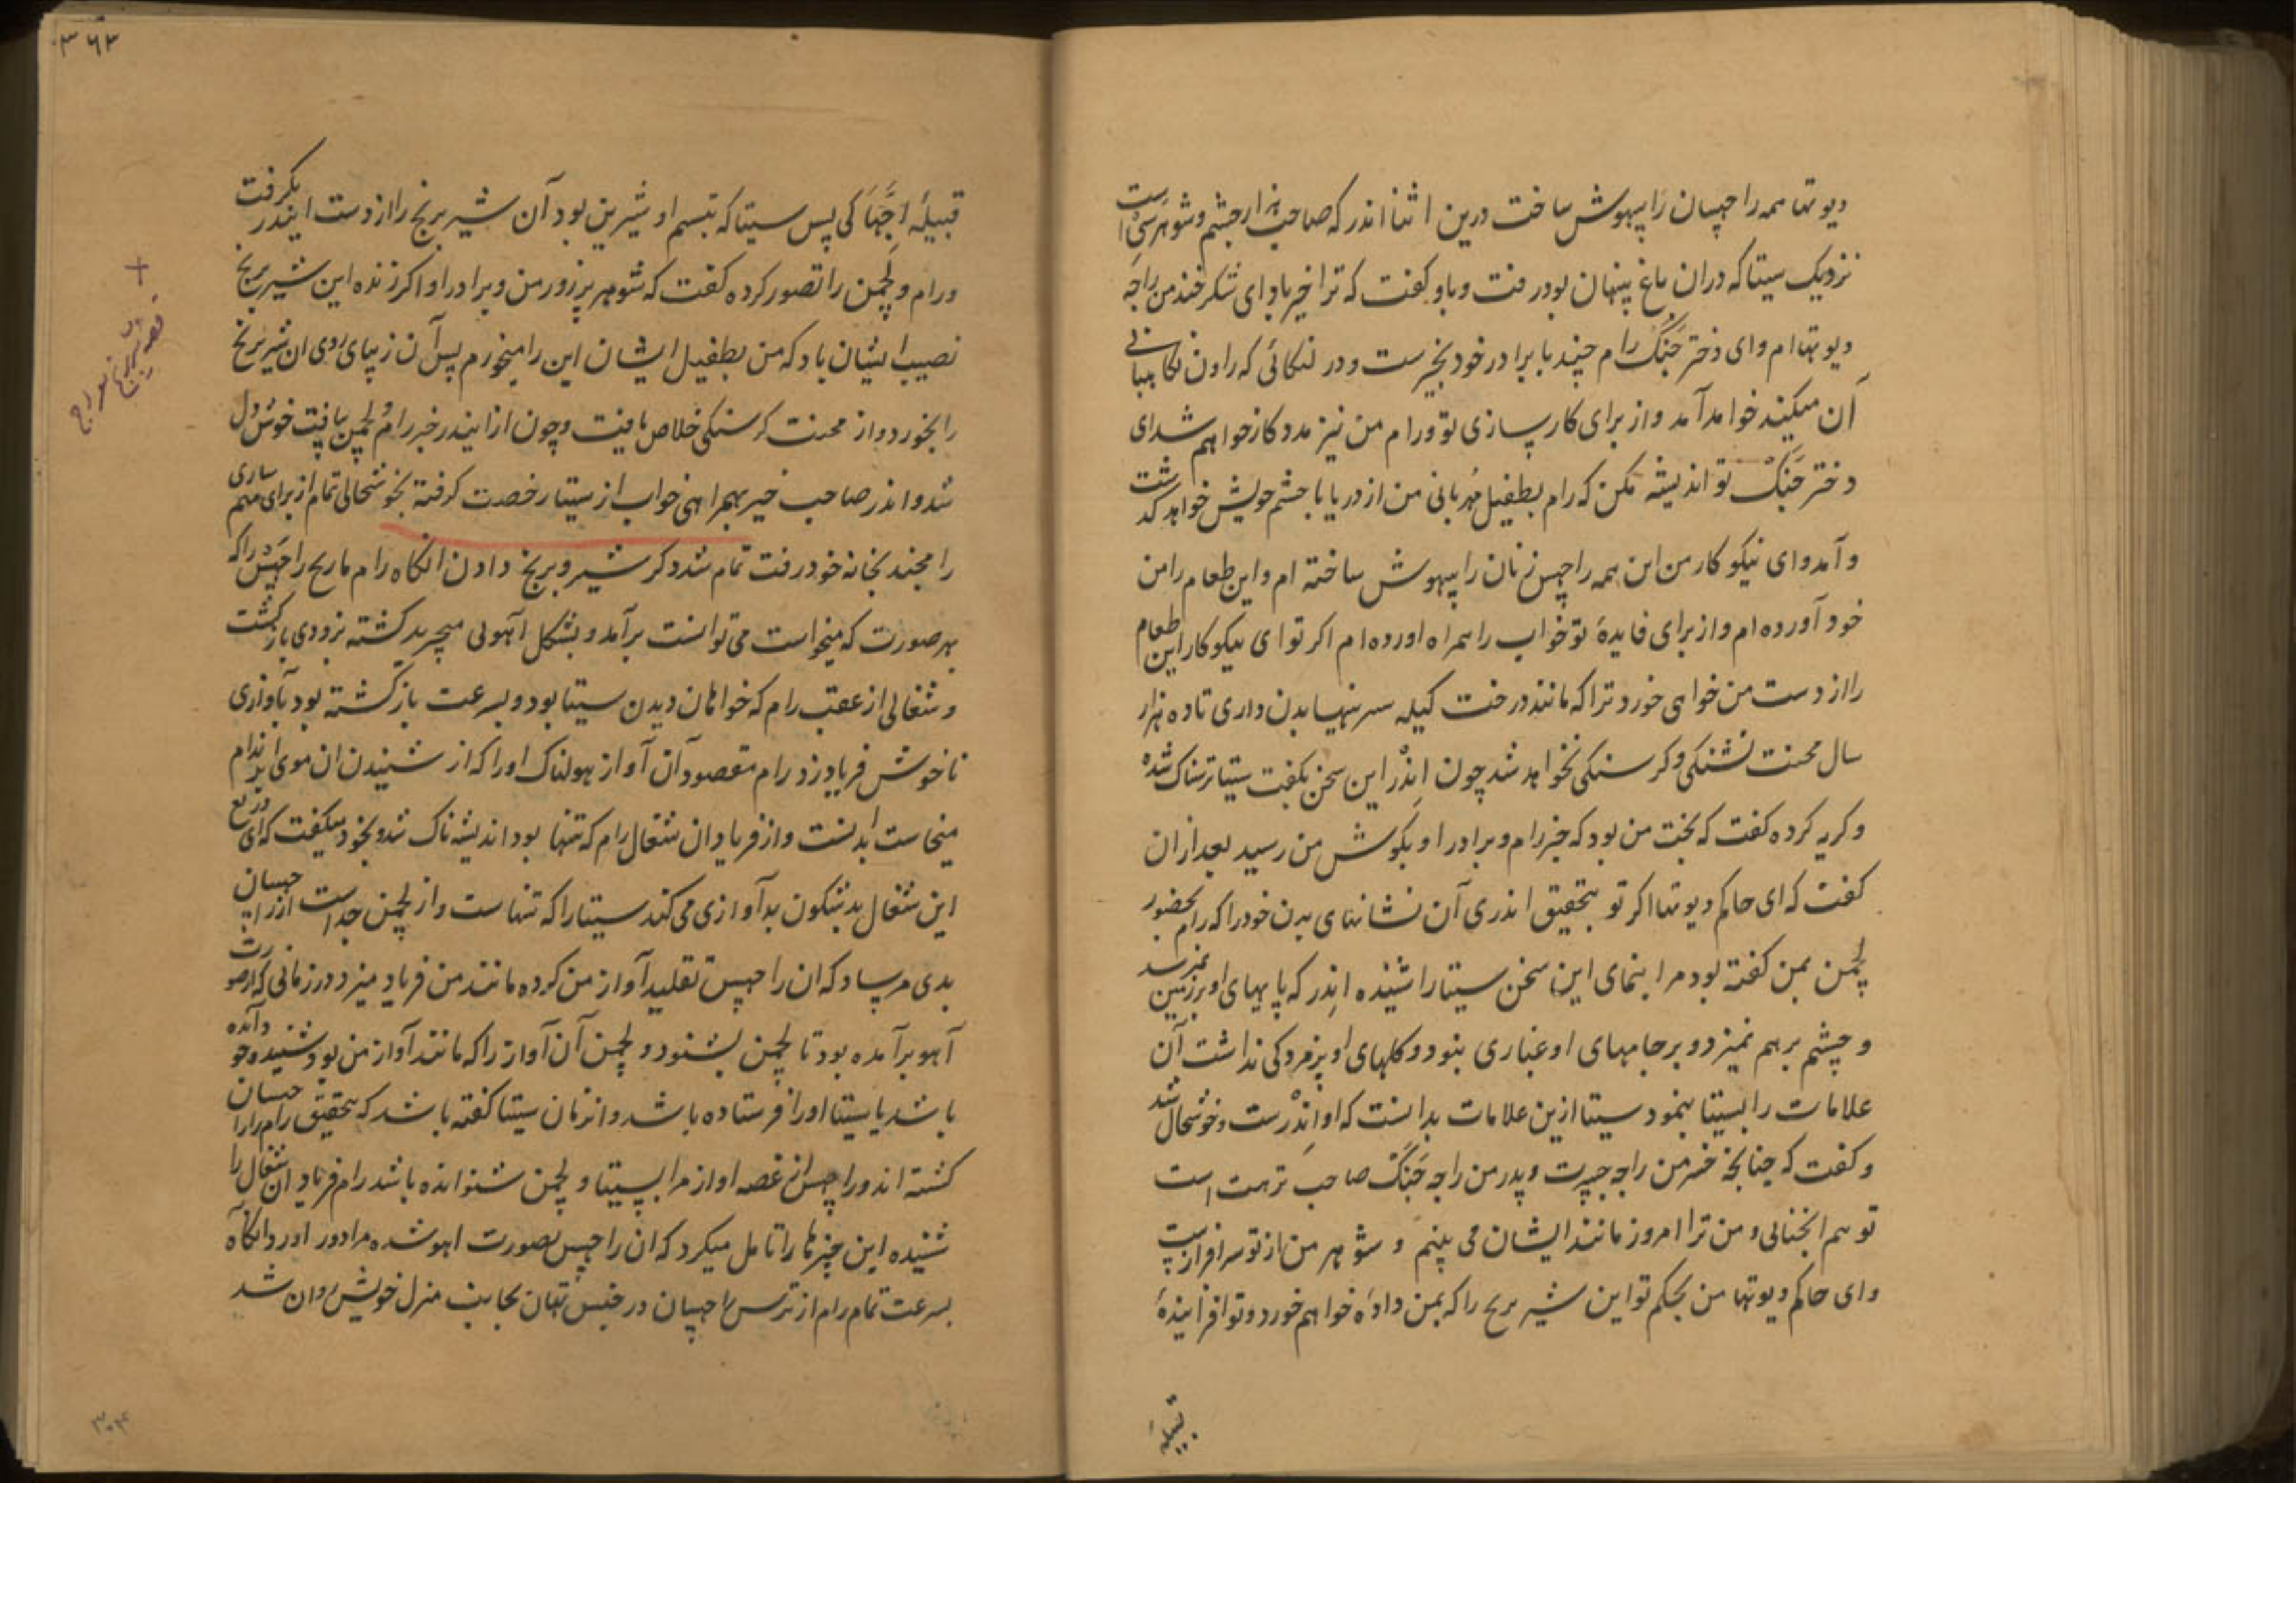 دیوتها همه راچهسان را بیهوش ساخت درین اثنا اندر که صاحب هزار چشم و شوهر سچی است
نزدیک سیتا که دران باغ پنهان بود رفت و باو کفت که ترا خیر باد ای شکرخند من راجه
دیوتها ام و ای دختر جنک رام چند با برادر خود بخیرست و در لنکائی که راون نکاهبانی
آن میکند خواهد آمد و از برای کارسازی تو و رام من نیز مددکار خواهم شد ای
دختر جنک تو اندیشه مکن که رام بطفیل مهربانی من از دریا با حشم خویش خواهد کذشت
و آمد و ای نیکوکار من این همه راچهس زنان را بیهوش ساخته ام و این طعام را من
خود آورده ام و از برای فایده تو خواب را همراه آورده ام اکر تو ای نیکوکار این طعام
را از دست من خواهی خورد ترا که مانند درخت کیله سرینها بدن داری تا ده هزار
سال محنت تشنکی و کرسنکی نخواهد شد چون اندر این سخن بکفت سیتا ترسناک شده
و کریه کرده کفت که بخت من بود که خبر رام و برادر او بکوش من رسید بعد ازان
کفت که ای حاکم دیوتها اکر تو بتحقیق اندری آن نشانهای بدن خود را که رام بحضور
لچمن بمن کفته بود مرا بنمای این سخن سیتا را شنیده اندر که پایهای او بر زمین نمیرسد
و چشم برهم نمیزد و بر جامهای او غباری نبود و کلهای او پژمردکی نداشت آن
علامات را بسیتا بنمود سیتا ازین علامات بدانست که او اندرست و خوشحال شد
و کفت که چنانچه خسر من راجه جسرت و پدر من راجه جنک صاحب ترهت است
تو هم انچنانی و من ترا امروز مانند ایشان می بینم و شوهر من از تو سرافرازست
و ای حاکم دیوتها من بحکم تو این شیر برنج را که بمن داده خواهم خورد و تو افزاینده
قبیله
۳۶۳
قبیله اجها کی پس سیتا که تبسم او شیرین بود آن شیر برنج را از دست ایندر بکرفت
و رام و لچمن را تصور کرده کفت که شوهر پر زور من و برادر او اکر زنده این شیر برنج
نصیب ایشان باد که من بطفیل ایشان این را میخورم پس آن زیبای روی ان شیر برنج
را بخورد و از محنت کرسنکی خلاص یافت و چون از ایندر خبر رام و لچمن بیافت خوش دل
شد و اندر صاحب خیر بهمراهی خواب از سیتا رخصت کرفته بخوشحالی تمام از برای مهم سازی
رامچند بخانه خود رفت تمام شد ذکر شیر و برنج دادن انکاه رام ماریج راچهس را که
بهر صورت که میخواست می توانست برآمد و بشکل آهوئی میچرید کشته بزودی بازکشت
و شغالی از عقب رام که خواهان دیدن سیتا بود و بسرعت بازکشته بود بآوازی
ناخوش فریاد زد رام مقصود آن آواز هولناک او را که از شنیدن ان موی بر اندام
میخاست بدانست و از فریاد ان شغال رام که تنها بود اندیشه ناک شد و بخود میکفت که ای دریغ
این شغال بدشکون بدآوازی می کند سیتا را که تنهاست و از لچمن جداست از راچهسان
بدی مرساد که ان راچهس تقلید آواز من کرده مانند من فریاد میزد در زمانی که از صورت
آهو برآمده بود تا لچمن بشنود و لچمن آن آواز را که مانند آواز من بود شنیده خود آمده
باشد یا سیتا او را فرستاده باشد و ازمان سیتا کفته باشد که بتحقیق رام را راچهسان
کشته اند و راچهس از غصه اواز مرا بسیتا و لچمن شنوانده باشد رام فریاد ان شغال را
شنیده این چیزها را تامل میکرد که ان راچهس بصورت اهو شده مرا دور اورد انکاه
بسرعت تمام رام از ترس راچهسان در جنس تهان بجانب منزل خویش روان شد
۳۰۴